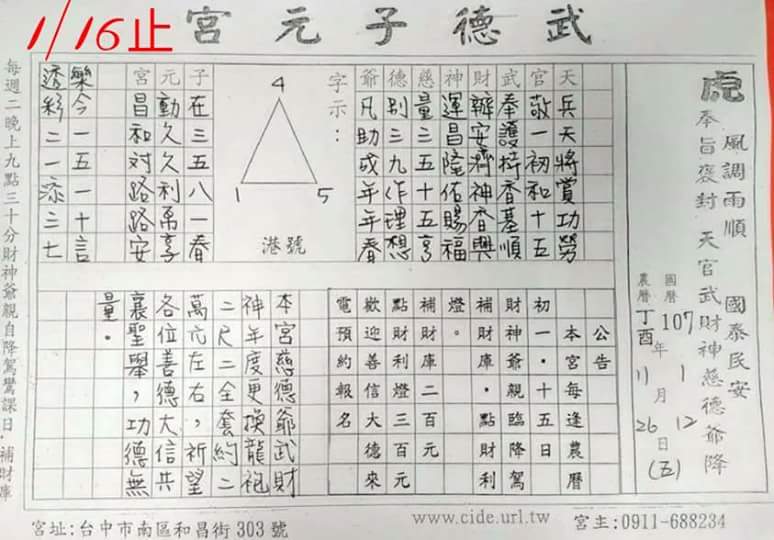 武德子元宮
1/16止
虎 奉旨褒封 天官武財神慈德爺降
風調雨順 國泰民安
國曆 107 年 1 月 12 日 (五)
農曆 丁酉 11 26
天兵天將賞功勞
官敬一初和十五
武奉護持香基順
財辦安濟神香興
神運昌隆佑賜福
慈量三五十五亨
德別三九作理想
爺凡助成年年春
字示：
4
1 5
港號
子在三五八一春
元動久久利 享
宮昌和対路路安
今一五一十言
透彩二一添三七
公告
本宮每逢農曆
初一·十五日
財神爺親臨降駕
補財庫·點財利
燈。
補財庫二百元
點財利燈三百元
歡迎善信大德來
電預約報名
本宮慈德爺武財
神年度更換龍袍
二尺二全套約二
萬六左右，祈望
各位善德大信共
襄聖舉，功德無
量。
每週二晚上九點三十分財神爺親自降駕鸞課日·補財庫
宮址:台中市南區和昌街 303 號
www.cide.url.tw
宮主:0911-688234